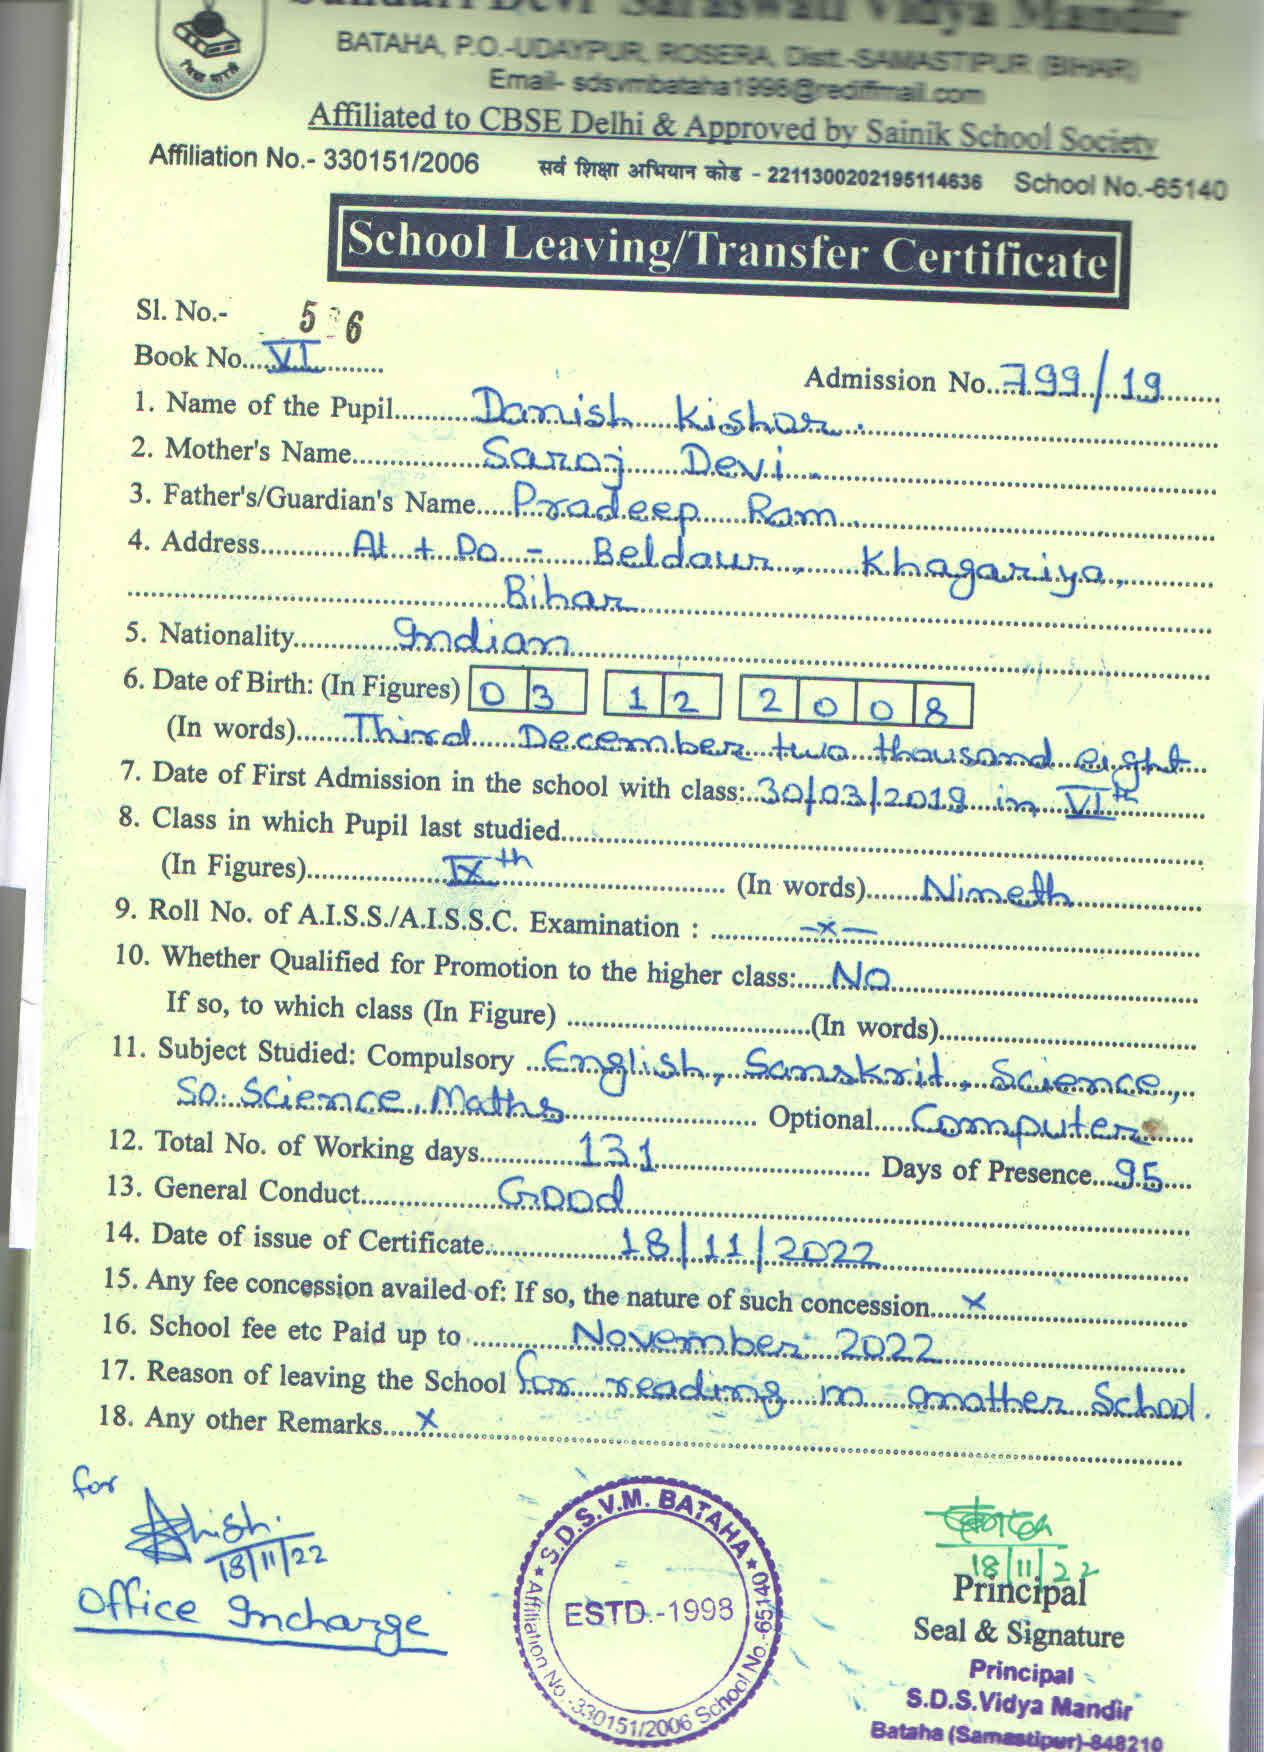 Sundari Devi Saraswati Vidya Mandir
BATAHA, P.O.-UDAYPUR, ROSERA, Distt.-SAMASTIPUR (BIHAR)
Email- sdsvmbataha1996@rediffmail.com
Affiliated to CBSE Delhi & Approved by Sainik School Society
Affiliation No.- 330151/2006 सर्व शिक्षा अभियान कोड - 2211300202195114636 School No.-65140
School Leaving/Transfer Certificate
Sl. No.- 5 6
Book No....VI.......... Admission No..799/19........
1. Name of the Pupil..........Danish Kishor..........
2. Mother's Name..........Saroj Devi..........
3. Father's/Guardian's Name.....Pradeep Ram..........
4. Address..........At + Po - Beldaur, Khagariya,..........
..........Bihar..........
5. Nationality..........Indian..........
6. Date of Birth: (In Figures) 03 12 2008
(In words).......Third December two thousand eight...
7. Date of First Admission in the school with class:..30/03/2019 in VIth..........
8. Class in which Pupil last studied..........
(In Figures)..........IXth.......... (In words)......Nineth..........
9. Roll No. of A.I.S.S./A.I.S.S.C. Examination : ..........-x-..........
10. Whether Qualified for Promotion to the higher class:.....NO..........
If so, to which class (In Figure) ..........(In words)..........
11. Subject Studied: Compulsory ...English, Sanskrit, Science,..
So. Science, Maths.......... Optional.....Computer......
12. Total No. of Working days..........131.......... Days of Presence...95....
13. General Conduct..........Good..........
14. Date of issue of Certificate..........18/11/2022..........
15. Any fee concession availed of: If so, the nature of such concession.....x..........
16. School fee etc Paid up to ..........November 2022..........
17. Reason of leaving the School for reading in another School.
18. Any other Remarks.....x..........
for
Ashish.
18/11/22
Office Incharge
S.D.S.V.M. BATAHA
ESTD.-1998
Affiliation No.-330151/2006 School No.-65140
18/11/22
Principal
Seal & Signature
Principal
S.D.S.Vidya Mandir
Bataha (Samastipur)-848210